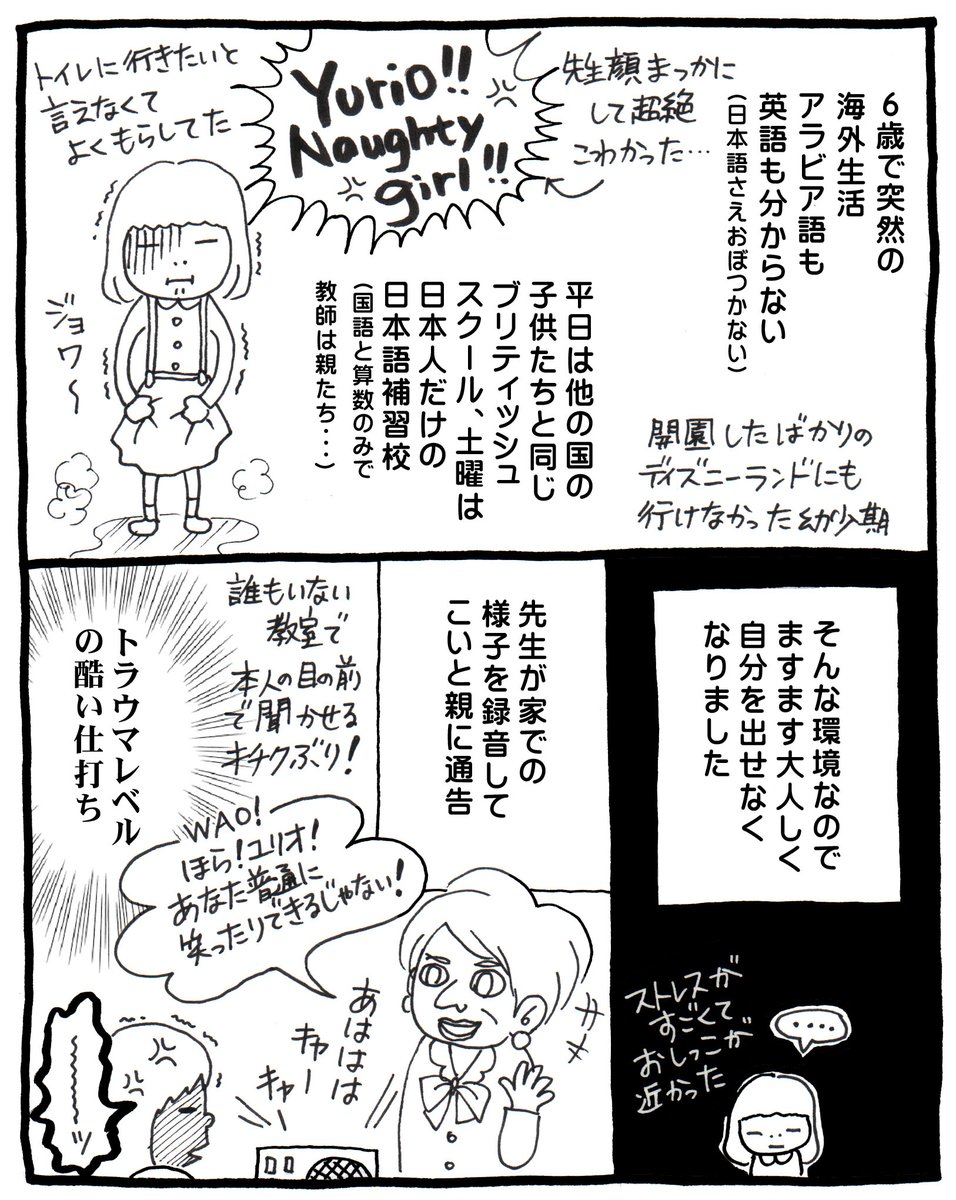 6歳で突然の
海外生活
アラビア語も
英語も分からない
(日本語さえおぼつかない)
先生顔まっかに
して超絶
こわかった…
Yurio!!
Naughty
girl!!
トイレに行きたいと
言えなくて
よくもらしてた
ジョワ〜
平日は他の国の
子供たちと同じ
ブリティッシュ
スクール、土曜は
日本人だけの
日本語補習校
(国語と算数のみで
教師は親たち・・・)
開園したばかりの
ディズニーランドにも
行けなかった幼少期
そんな環境なので
ますます大人しく
自分を出せなく
なりました
ストレスが
すごくて
おしっこが
近かった
....
先生が家での
様子を録音して
こいと親に通告
誰もいない
教室で
本人の目の前
で聞かせる
キチクぶり!
トラウマレベル
の酷い仕打ち
WAO!
ほら!ユリオ!
あなた普通に
笑ったりできるじゃない!
あははは
キャー
キャー
〜〜〜ッ